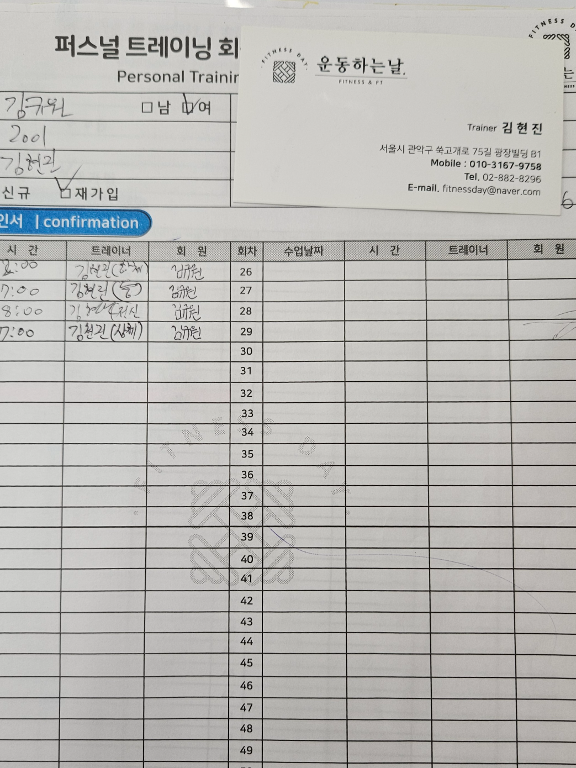 퍼스널 트레이닝 회
Personal Trainin
FITNESS DAY
운동하는날
FITNESS & PT
Trainer 김현진
서울시 관악구 쑥고개로 75길 광장빌딩 B1
Mobile : 010-3167-9758
Tel. 02-882-8296
E-mail. fitnessday@naver.com
FITNESS DA
김규원 남 여
2001
김현진
신규 재가입
6
인서 | confirmation
시 간 트레이너 회 원 회차 수업날짜 시 간 트레이너 회 원
8:00 김현진(하체) 김규원 26
7:00 김현진(등) 김규원 27
8:00 김규원 28
7:00 김현진(상체) 김규원 29
30
31
32
33
34
35
36
37
38
39
40
41
42
43
44
45
46
47
48
49
FITNESS DAY